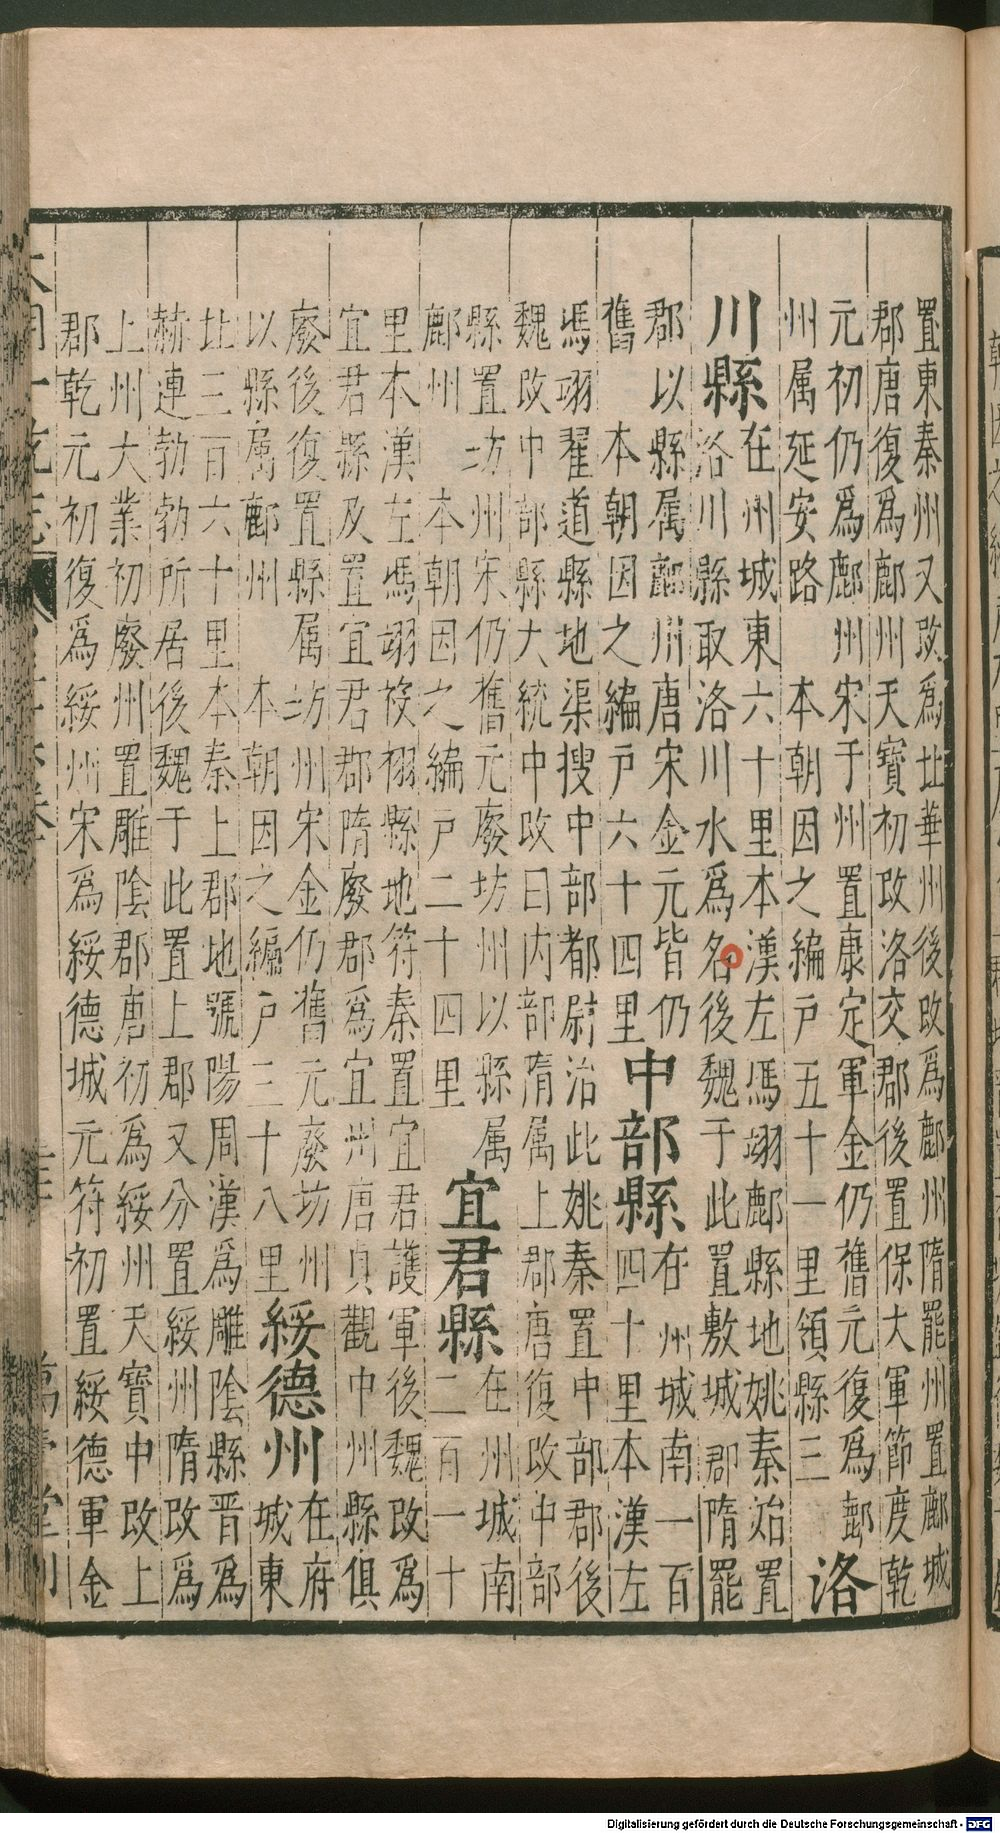 置東秦州又改爲北華州後改爲鄜州隋罷州置鄜城
郡唐復爲鄜州天寶初改洛交郡後置保大軍節度乾
元初仍爲鄜州宋于州置康定軍金仍舊元復爲鄜
州属延安路 本朝因之編戸五十一里領縣三 洛
川縣 在州城東六十里本漢左馮翊鄜縣地姚秦始置
洛川縣取洛川水爲名後魏于此置敷城郡隋罷
郡以縣属鄜州唐宋金元皆仍
舊 本朝因之編戸六十四里 中部縣 在州城南一百
四十里本漢左
馮翊翟道縣地渠搜中部都尉治此姚秦置中部郡後
魏改中部縣大統中改曰内部隋属上郡唐復改中部
縣置坊州宋仍舊元廢坊州以縣属
鄜州 本朝因之編戸二十四里 宜君縣 在州城南
二百一十
里本漢左馮翊祋祤縣地符秦置宜君護軍後魏改爲
宜君縣及置宜君郡隋廢郡爲宜州唐貞觀中州縣俱
廢後復置縣属坊州宋金仍舊元廢坊州
以縣属鄜州 本朝因之編戸三十八里 綏德州 在府
城東
北三百六十里本秦上郡地號陽周漢爲雕陰縣晋爲
赫連勃勃所居後魏于此置上郡又分置綏州隋改爲
上州大業初廢州置雕陰郡唐初爲綏州天寶中改上
郡乾元初復爲綏州宋爲綏德城元符初置綏德軍金
Digitalisierung gefördert durch die Deutsche Forschungsgemeinschaft - DFG